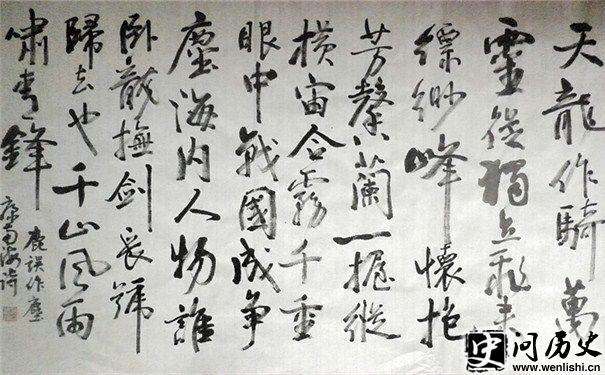 天龍作騎萬
靈從獨立飛來
縹緲峰懷抱
芳馨蘭一握縱
橫宙合霧千重
眼中戰國成争
塵海内人物誰
卧龍撫劍長號
歸去也千山風雨
嘯青鋒
鹿誤作塵
康南海詩
史 问历史
www.wenlishi.cn